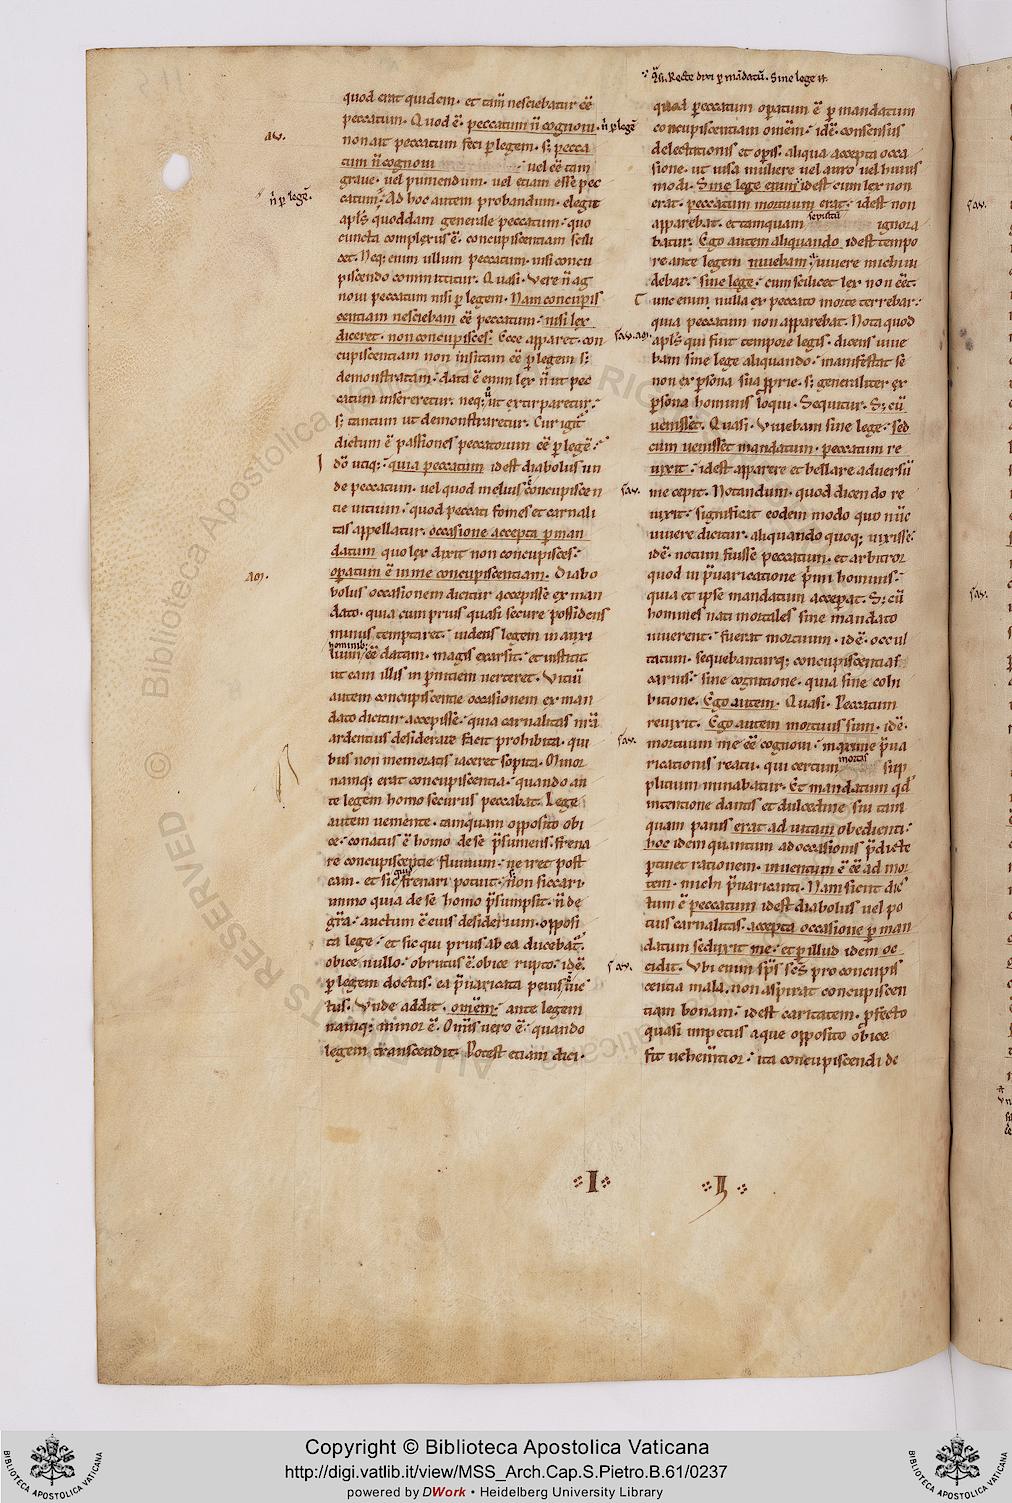 ·:· Qs. Recte dixi p mandatū. Sine lege n.
quod erat quidem. et tam̄ nesciebatur eē
peccatum. Quod ē. peccatum n̄ cognoui. n̄ p legē
non ait peccatum feci p legem. s; pecca
tum n̄ cognoui uel eē tam
graue. uel puniendum. uel etiam esse pec
catum. Ad hoc autem probandum. elegit
apl's quoddam generale peccatum. quo
cuncta complexus ē. concupiscentiam scili
cet. Neq; enim ullum peccatum. nisi concu
piscendo committitur. Quasi. Vere n̄ ag
noui peccatum nisi p legem. Nam concupis
centiam nesciebam eē peccatum. nisi lex
diceret. non concupisces. Ecce apparet. con
cupiscentiam non insitam eē p legem s;
demonstratam. data ē enim lex n̄ ut pec
catum insereretur. neq; ut extirparetur.
s; tantum ut demonstraretur. Cur igit̄
dictum ē passiones peccatorum eē p legē.
I dō utiq; quia peccatum idest diabolus un
de peccatum. uel quod melius concupiscen
tie uitium. quod peccati fomes et carnali
tas appellatur. occasione accepta p man
datum quo lex dixit non concupisces.
opatum ē in me concupiscentiam. Diabo
bolus occasionem dicitur accepisse ex man
dato. quia cum prius quasi secure possidens
minus temptaret. uidens legem in auxi
lium hominib; eē datam. magis exarsit. et institit
ut eam illis in pniciem uerteret. Vitiū
autem concupiscentie occasionem ex man
dato dicitur accepisse. quia carnalitas nr̄a
ardentius desiderare facit prohibita. qui
bus non memoratis iaceret sopita. Minor
namq; erat concupiscentia. quando an
te legem homo securus peccabat. Lege
autem ueniente. tamquam opposito obi
ce. conatus ē homo de se p̄sumens. frena
re concupiscentie fluuium. ne iret post
eam. et sic frenari potuit. non siccari
immo quia de se homo p̄sumpsit. n̄ de
gr̄a. auctum ē eius desiderium. opposi
ta lege. et sic qui prius ab ea ducebat̄.
obice nullo. obrutus ē. obice rupto. idē.
p legem doctus. ea p̄uaricata peius uic
tus. Vnde addit. omēm. ante legem
namq; minor ē. Om̄is uero ē. quando
legem transcendit. Potest etiam dici.
quod peccatum opatum ē p mandatum
concupiscentiam omēm. idē. consensus
delectationis et opis. aliqua accepta occa
sione. ut uisa muliere uel auro uel huius
modi. Sine lege enim idest cum lex non
erat. peccatum mortuum erat. idest non
apparebat. et tamquam sepultū ignora
batur. Ego autem aliquando idest tempo
re ante legem uiuebam. uiuere michi ui
debar. sine lege. cum scilicet lex non eēt.
T unc enim nulla ex peccato morte terrebar.
quia peccatum non apparebat. Nota quod
apl's qui fuit tempore legis. dicens uiue
bam sine lege aliquando. manifestat se
non ex psona sua pprie. s; generaliter ex
psona hominis loqui. Sequitur. S; cū
uenisset. Quasi. Viuebam sine lege. sed
cum uenisset mandatum. peccatum re
uixit. idest apparere et bellare aduersū
me cepit. Notandum. quod dicendo re
uixit. significat eodem modo quo nūc
uiuere dicitur. aliquando quoq; uixisse.
idē. notum fuisse peccatum. et arbitror
quod in p̄uaricatione p̄mi hominis.
quia et ipse mandatum acceperat. S; cū
homines nati mortales sine mandato
uiuerent. fuerat mortuum. idē. occul
tatum. sequebanturq; concupiscentias
carnis. sine cognitione. quia sine cohi
bitione. Ego autem. Quasi. Peccatum
reuixit. Ego autem mortuus sum. idē.
mortuum me eē cognoui. maxime p̄ua
ricationis reatu. qui certum mortis sup
plitium minabatur. Et mandatum qd'
intentione dantis et dulcedine sui tam
quam panis erat ad uitam obedienti.
hoc idem quantum ad occasionis p̄dicte
ptinet rationem. inuentum ē eē ad mor
tem. michi p̄uaricanti. Nam sicut dic
tum ē peccatum idest diabolus uel po
tius carnalitas. accepta occasione p man
datum seduxit me. et p illud idem oc
cidit. Vbi enim sps scs pro concupis
centia mala. non aspirat concupiscen
tiam bonam. idest caritatem. pfecto
quasi impetus aque opposito obice
fit uehemtior. ita concupiscendi de
n̄ p legē.
·:·I·:· ·:·II·:·
Copyright © Biblioteca Apostolica Vaticana
http://digi.vatlib.it/view/MSS_Arch.Cap.S.Pietro.B.61/0237
powered by DWork • Heidelberg University Library